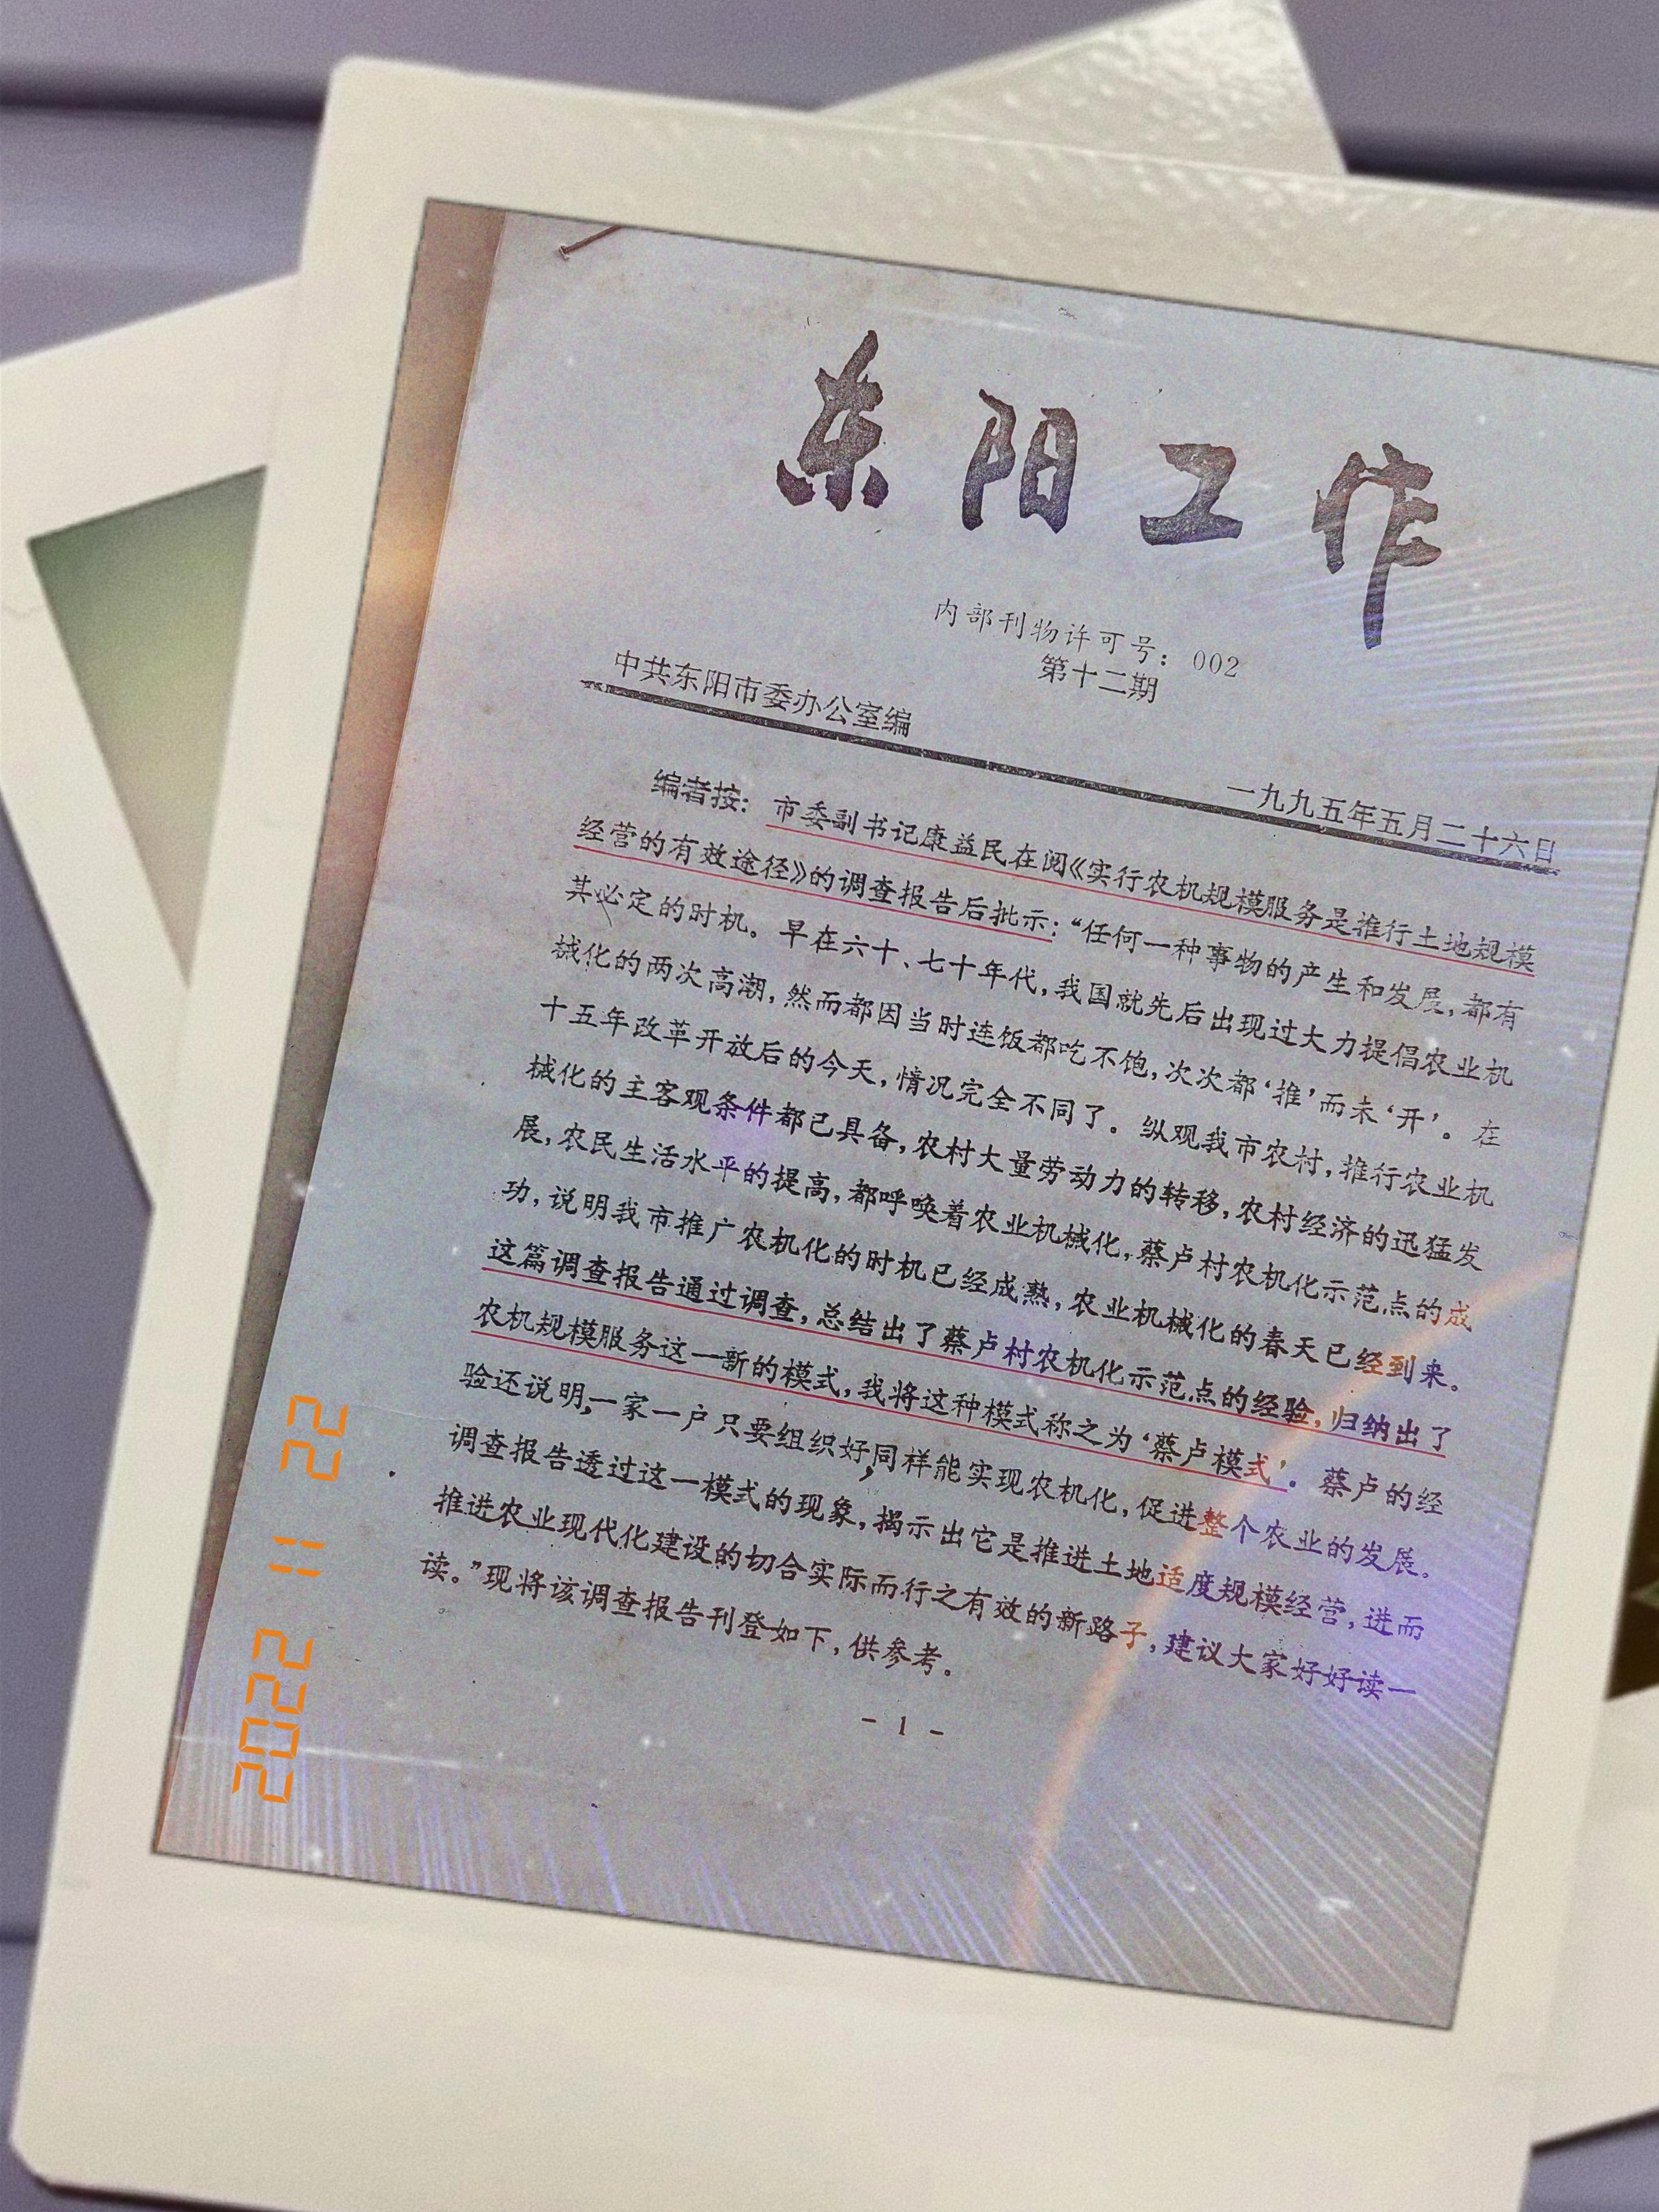 东阳工作
内部刊物许可号：002
第十二期
中共东阳市委办公室编
一九九五年五月二十六日
编者按：市委副书记康益民在阅《实行农机规模服务是推行土地规模
经营的有效途径》的调查报告后批示：“任何一种事物的产生和发展，都有
其必定的时机。早在六十、七十年代，我国就先后出现过大力提倡农业机
械化的两次高潮，然而都因当时连饭都吃不饱，次次都‘推’而未‘开’。在
十五年改革开放后的今天，情况完全不同了。纵观我市农村，推行农业机
械化的主客观条件都已具备，农村大量劳动力的转移，农村经济的迅猛发
展，农民生活水平的提高，都呼唤着农业机械化，蔡卢村农机化示范点的成
功，说明我市推广农机化的时机已经成熟，农业机械化的春天已经到来。
这篇调查报告通过调查，总结出了蔡卢村农机化示范点的经验，归纳出了
农机规模服务这一新的模式，我将这种模式称之为‘蔡卢模式’。蔡卢的经
验还说明，一家一户只要组织好，同样能实现农机化，促进整个农业的发展。
调查报告透过这一模式的现象，揭示出它是推进土地适度规模经营，进而
推进农业现代化建设的切合实际而行之有效的新路子，建议大家好好读一
读。”现将该调查报告刊登如下，供参考。
- 1 -
2022 11 22